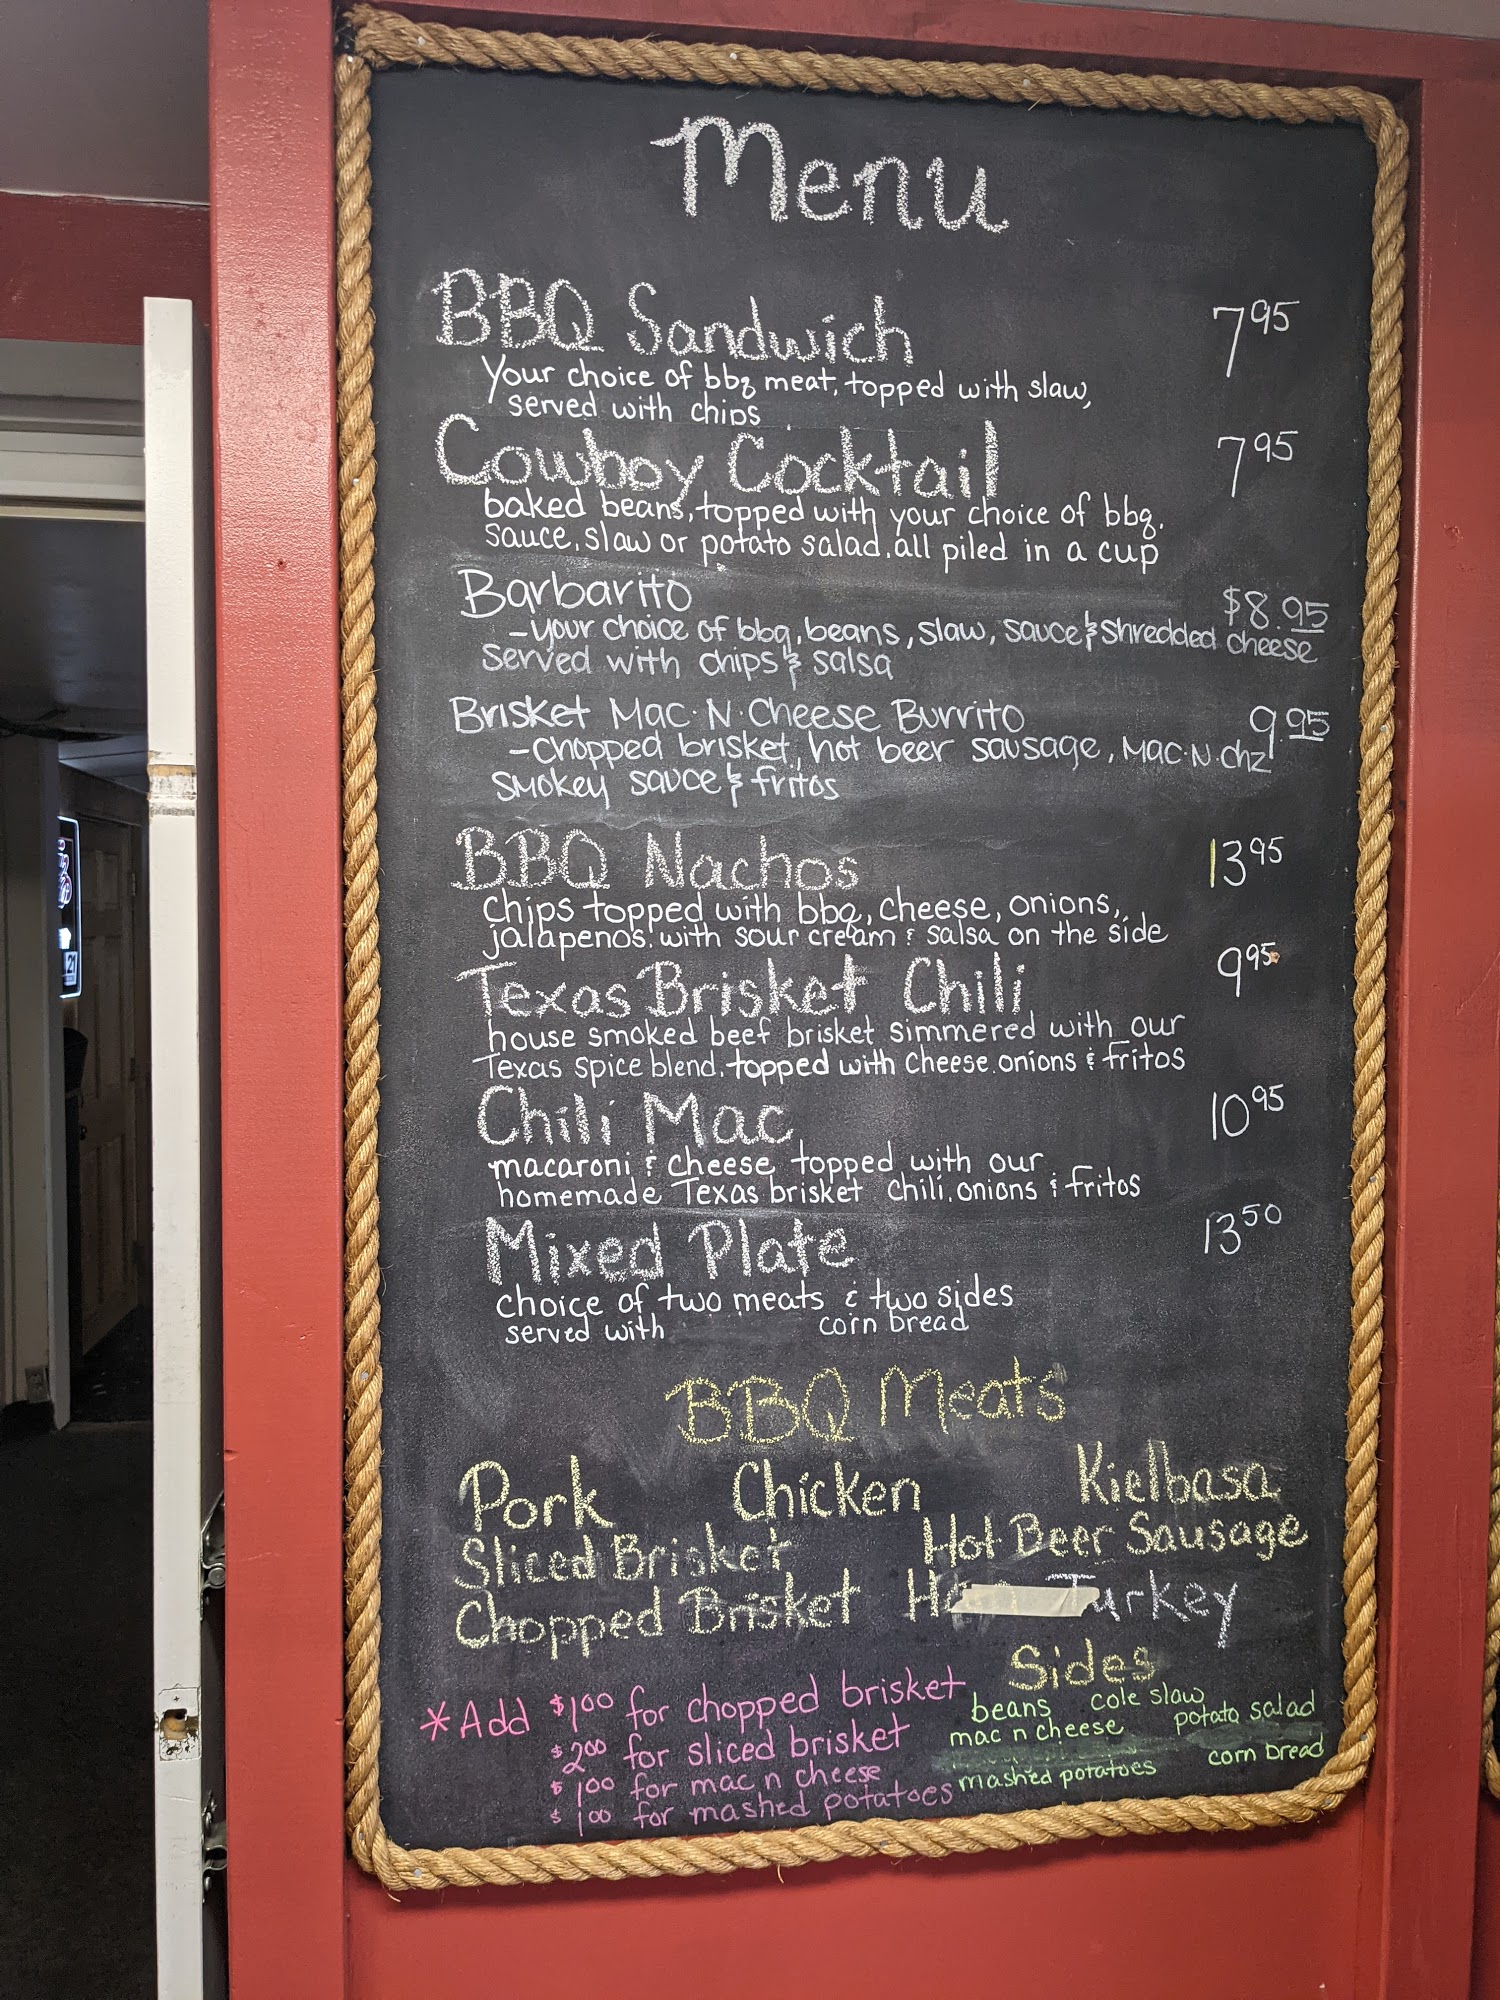 Menu
BBQ Sandwich 7 95
Your choice of bbq meat, topped with slaw,
served with chips
Cowboy Cocktail 7 95
baked beans, topped with your choice of bbq,
sauce, slaw or potato salad, all piled in a cup
Barbarito $8.95
-your choice of bbq, beans, slaw, sauce & shredded cheese
served with chips & salsa
Brisket Mac·N·Cheese Burrito 9.95
-chopped brisket, hot beer sausage, Mac·N·chz
smokey sauce & fritos
BBQ Nachos 13 95
chips topped with bbq, cheese, onions,
jalapenos, with sour cream & salsa on the side
Texas Brisket Chili 9 95
house smoked beef brisket simmered with our
Texas spice blend, topped with cheese, onions & fritos
Chili Mac 10 95
macaroni & cheese topped with our
homemade Texas brisket chili, onions & fritos
Mixed Plate 13 50
choice of two meats & two sides
served with corn bread
BBQ Meats
Pork Chicken Kielbasa
Sliced Brisket Hot Beer Sausage
Chopped Brisket Turkey
*Add $1 00 for chopped brisket
$2 00 for sliced brisket
$1 00 for mac n cheese
$1 00 for mashed potatoes
Sides
beans cole slaw
mac n cheese potato salad
mashed potatoes corn bread
21